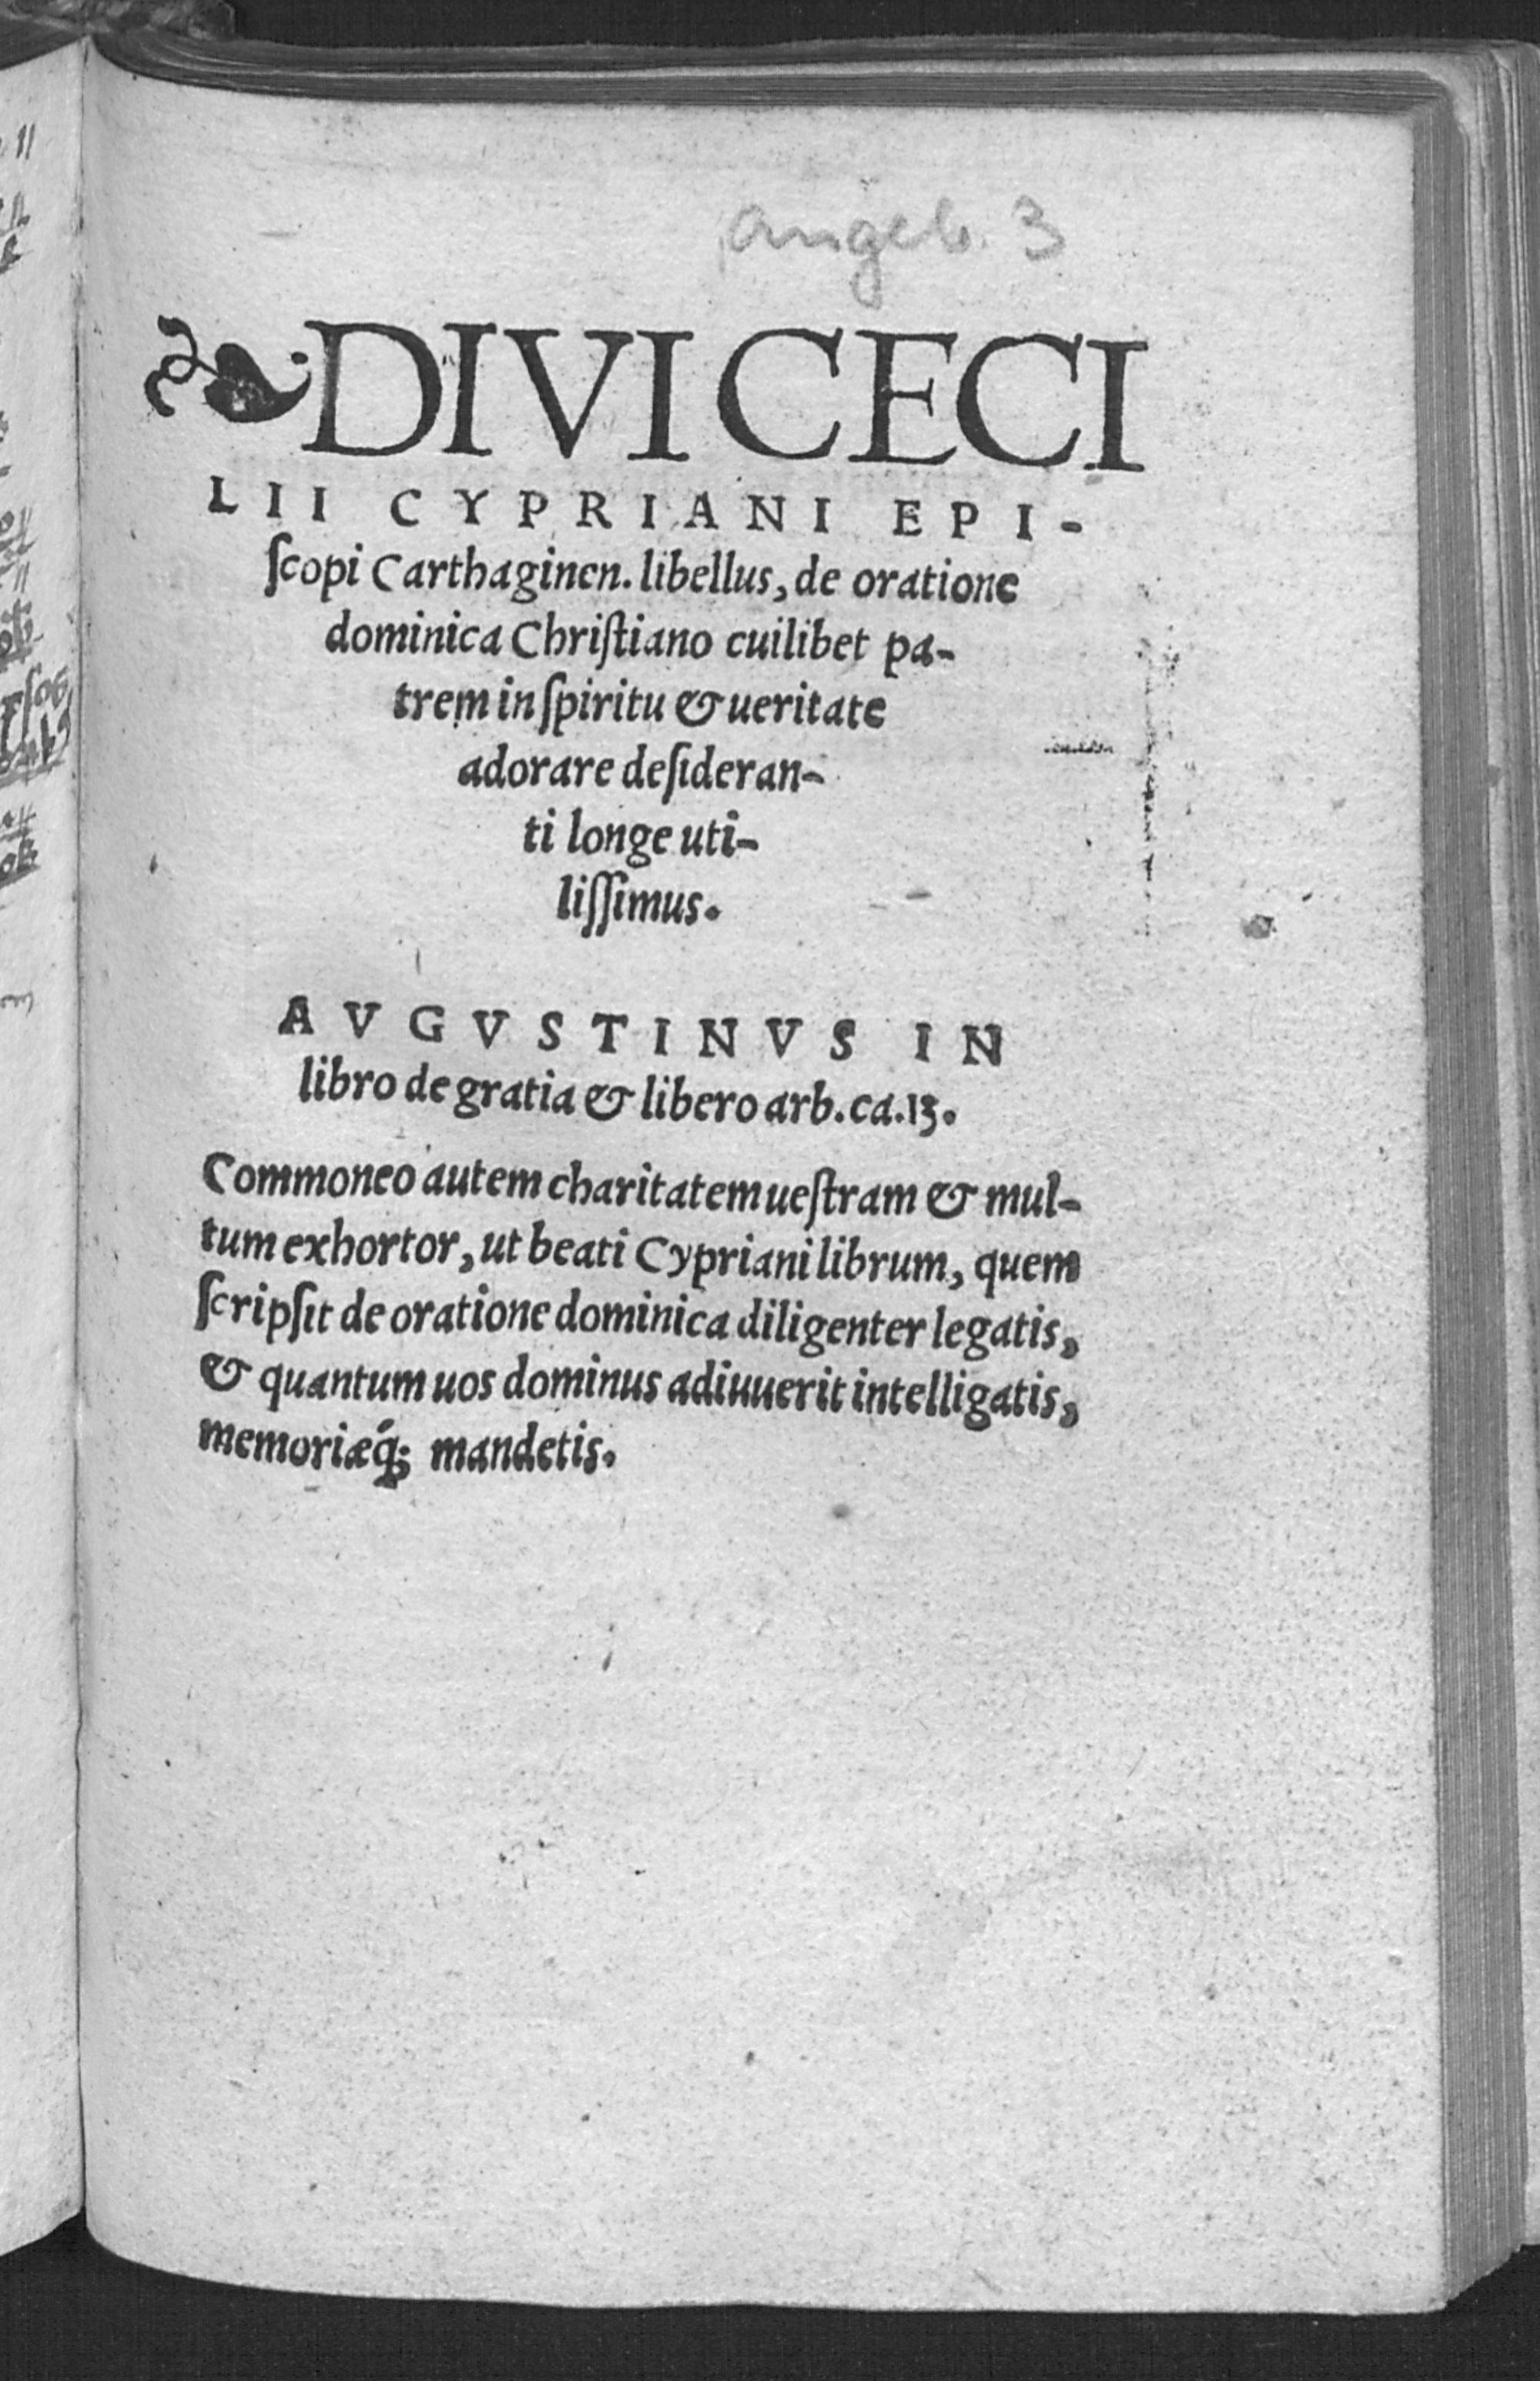 angeb. 3
❧DIVI CECI
LII CYPRIANI EPI-
ſcopi Carthaginen. libellus, de oratione
dominica Chriſtiano cuilibet pa-
trem in ſpiritu & ueritate
adorare deſideran-
ti longe uti-
liſſimus.
AVGVSTINVS IN
libro de gratia & libero arb. ca. 13.
Commoneo autem charitatem ueſtram & mul-
tum exhortor, ut beati Cypriani librum, quem
ſcripſit de oratione dominica diligenter legatis,
& quantum uos dominus adiuuerit intelligatis,
memoriæq́; mandetis.